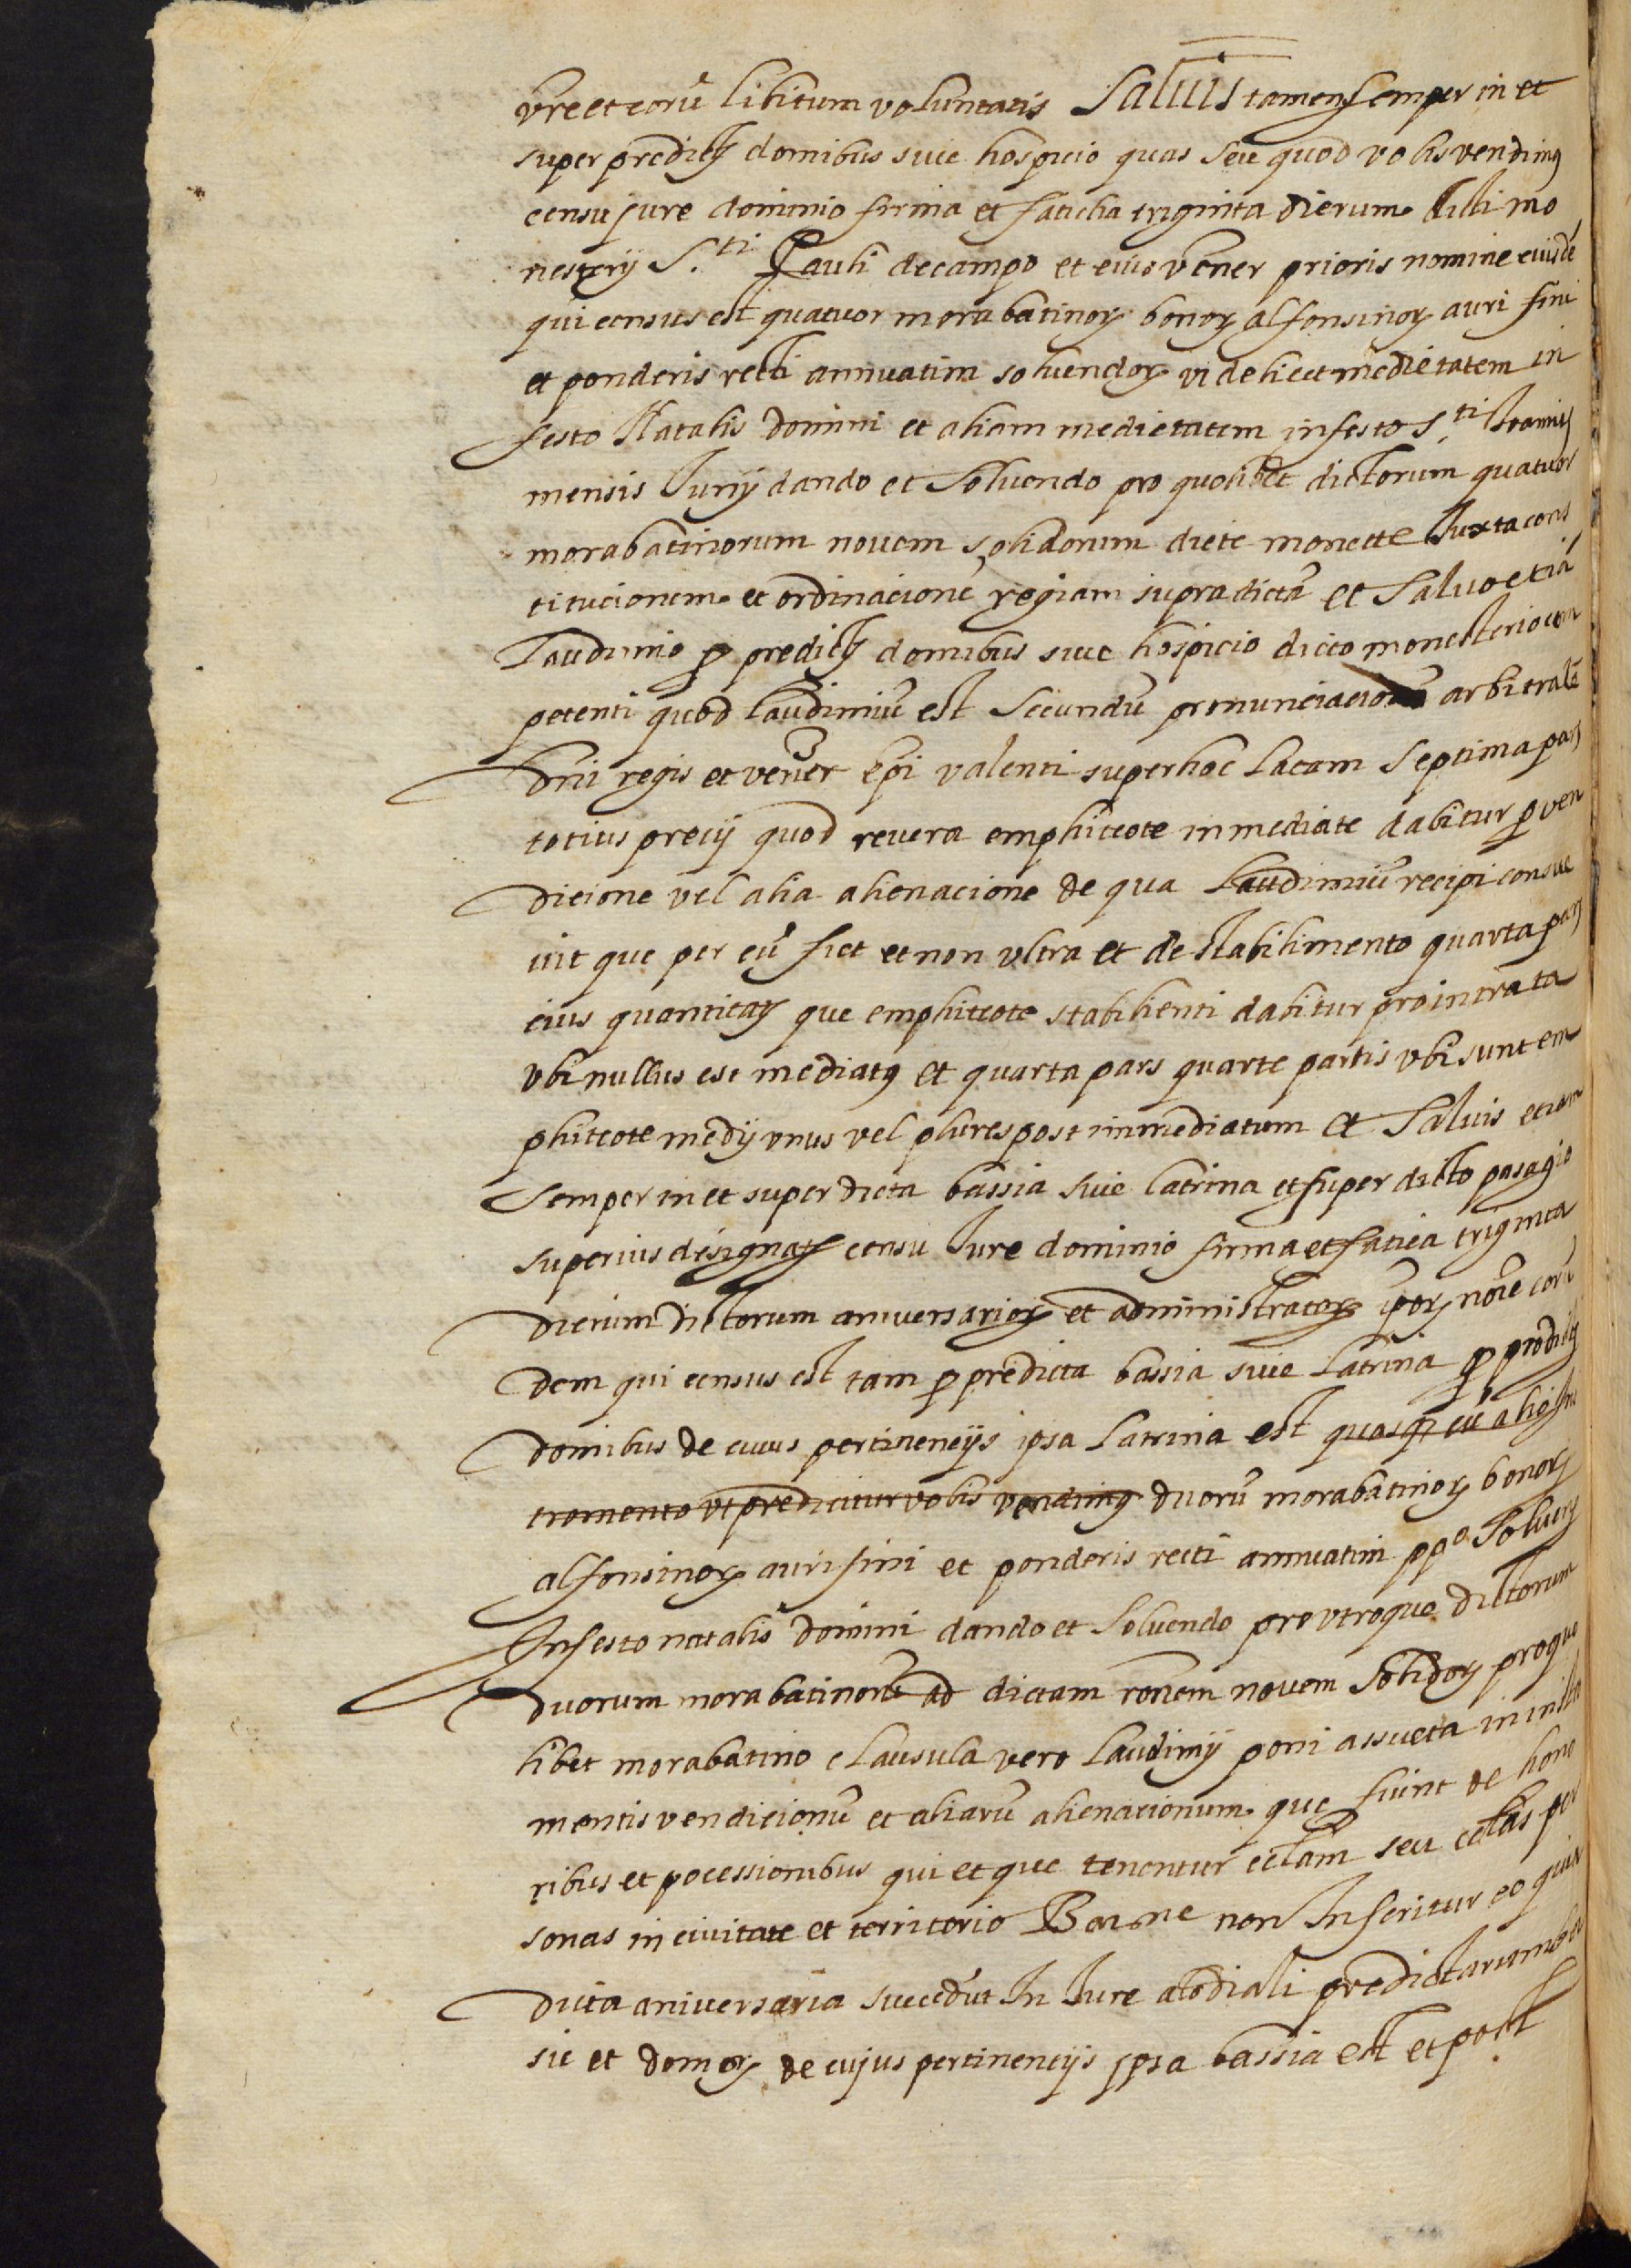 vre et eorũ libitum voluntatis Saluis tamen semper in et
super predictꝭ domibus siue hospicio quas seu quod vobis vendimꝰ
censu jure dominio firma et faticha triginta dierum dicti mo
nesterij S.ti Pauli de campo et eius vener prioris nomine eiusdẽ
qui census est quatuor morabatinoꝝ bonoꝝ alfonsinoꝝ auri fini
et ponderis recti annuatim soluendoꝝ videlicet medietatem in
festo Natalis domini et aliam medietatem in festo S.ti Joannis
mensis Junij dando et Soluendo pro quolibet dictorum quatuor
morabatinorum nouem solidorum dicte monette Juxta cons
titucionem et ordinacionẽ regiam supradictã et Saluo etiã
Laudimio ꝓ predictꝭ domibus siue hospicio dicto monesterio com
petenti quod laudimiũ est Secundũ pronunciacionẽ arbitralẽ
dñi regis et vener epĩ valenti super hoc latam Septima pars
totius precij quod reuera emphiteote inmediate dabitur ꝓ ven
dicione vel alia alienacione de qua Laudimiũ recipi consue
uit que per eũ fiet et non vltra et de stabilimento quarta pars
eius quantitatꝭ que emphiteote stabilienti dabitur pro intrata
vbi nullus est mediatꝰ et quarta pars quarte partis vbi sunt em
phiteote medij vnus vel plures post inmediatum et Saluis etiam
Semper in et super dicta bassia siue latrina et super dicto pasagio
superius designatꝭ censu Jure dominio firma et fatica triginta
dierum dictorum aniuersarioꝝ et administratoꝝ ip̃oꝝ noĩe eorũ
dem qui census est tam ꝓ predicta bassia siue Latrina ꝓ predictꝭ
domibus de cuius pertinencijs ipsa Latrina est quasqꝫ cũ alio Ins
tromento vt predicitur vobis vendimꝰ duorũ morabatinoꝝ bonoꝝ
alfonsinoꝝ auri fini et ponderis recti annuatim ppº Soluendꝭ
In festo natalis domini dando et Soluendo pro vtroque dictorum
duorum morabatinorũ ad dictam roñem nouem Solidoꝝ pro quo
libet morabatino clausula vero laudimij poni assueta in instru
mentis vendicionũ et aliarũ alienacionum que fiunt de hono
ribus et pocessionibus qui et que tenentur per ecc̃lam seu ecc̃las per
sonas in ciuitate et territorio Barne non Inseritur eo quia
dicta aniuersaria succedũt In Jure alodiali predictarum bas
sie et domoꝝ de cujus pertinencijs ipsa bassia est et post